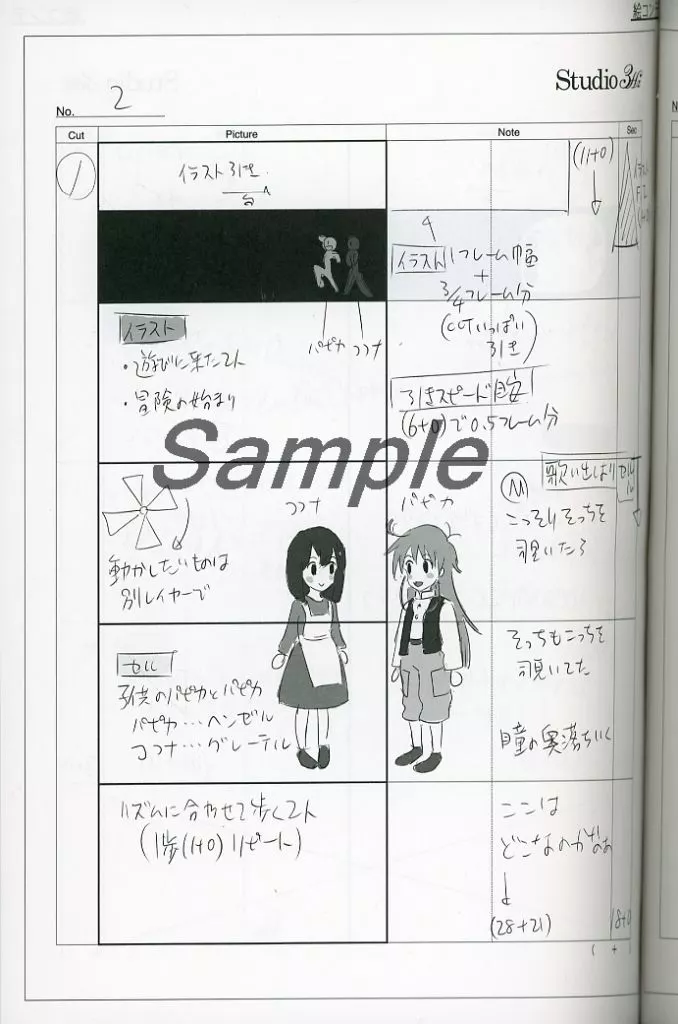 絵コン
Studio 3Hi
No. 2
Cut
Picture
Note
Sec
1
イラスト引き
(11+0)
イラスト
F.I
イラスト 1フレーム巾
+
3/4フレーム分
(CUTいっぱい
引き)
パピカ ココナ
イラスト
・遊びに来た2人
・冒険の始まり
引きスピード目安
(6+0)で0.5フレーム分
Sample
歌い出しはり
M
こっそりそっちを
覗いたら
ココナ
パピカ
動かしたいものは
別レイヤーで
そっちもこっちを
覗いてた
セル
子供のパピカとパピカ
パピカ…ヘンゼル
ココナ…グレーテル
瞳の奥落ちいく
リズムに合わせて歩く2人
(1歩(1+0)リピート)
ここは
どこなのかなぁ
(28+21)
18+0
( + )